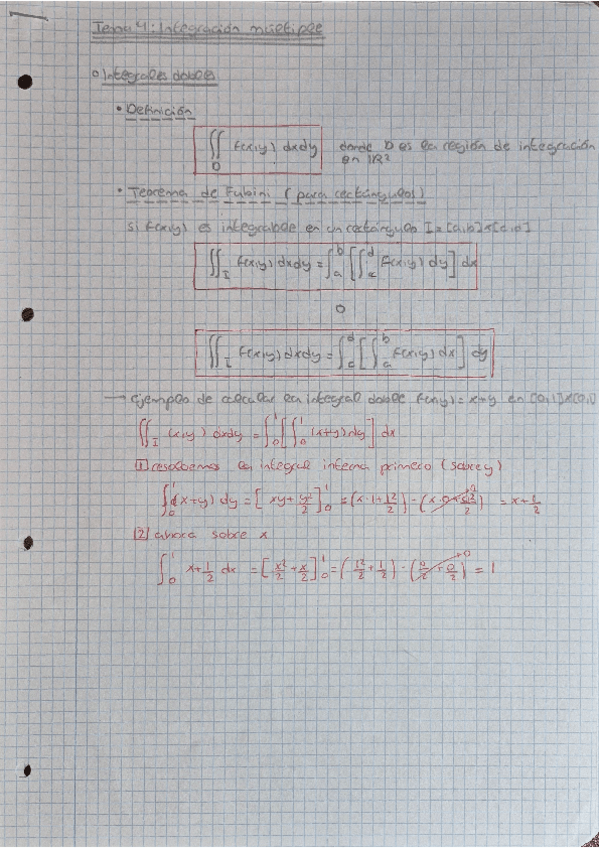 Tema 4: Integración múltiple
o Integrales dobles
• Definición
∬_D f(x,y) dxdy donde D es la región de integración
en ℝ²
• Teorema de Fubini (para rectángulos)
Si f(x,y) es integrable en un rectángulo I=[a,b]x[c,d]
∬_I f(x,y) dxdy = ∫_a^b [∫_c^d f(x,y) dy] dx
O
∬_I f(x,y) dxdy = ∫_c^d [∫_a^b f(x,y) dx] dy
→ Ejemplo de calcular la integral doble f(x,y) = x+y en [0,1]X[0,1]
∬_I (x,y) dxdy = ∫_0^1 [∫_0^1 (x+y) dy] dx
1 resolvemos la integral interna primero (sobre y)
∫_0^1 (x+y) dy = [xy + y²/2]_0^1 = (x·1 + 1²/2) - (x·0 + 0²/2) = x + 1/2
2 ahora sobre x
∫_0^1 x + 1/2 dx = [x²/2 + x/2]_0^1 = (1²/2 + 1/2) - (0/2 + 0/2) = 1